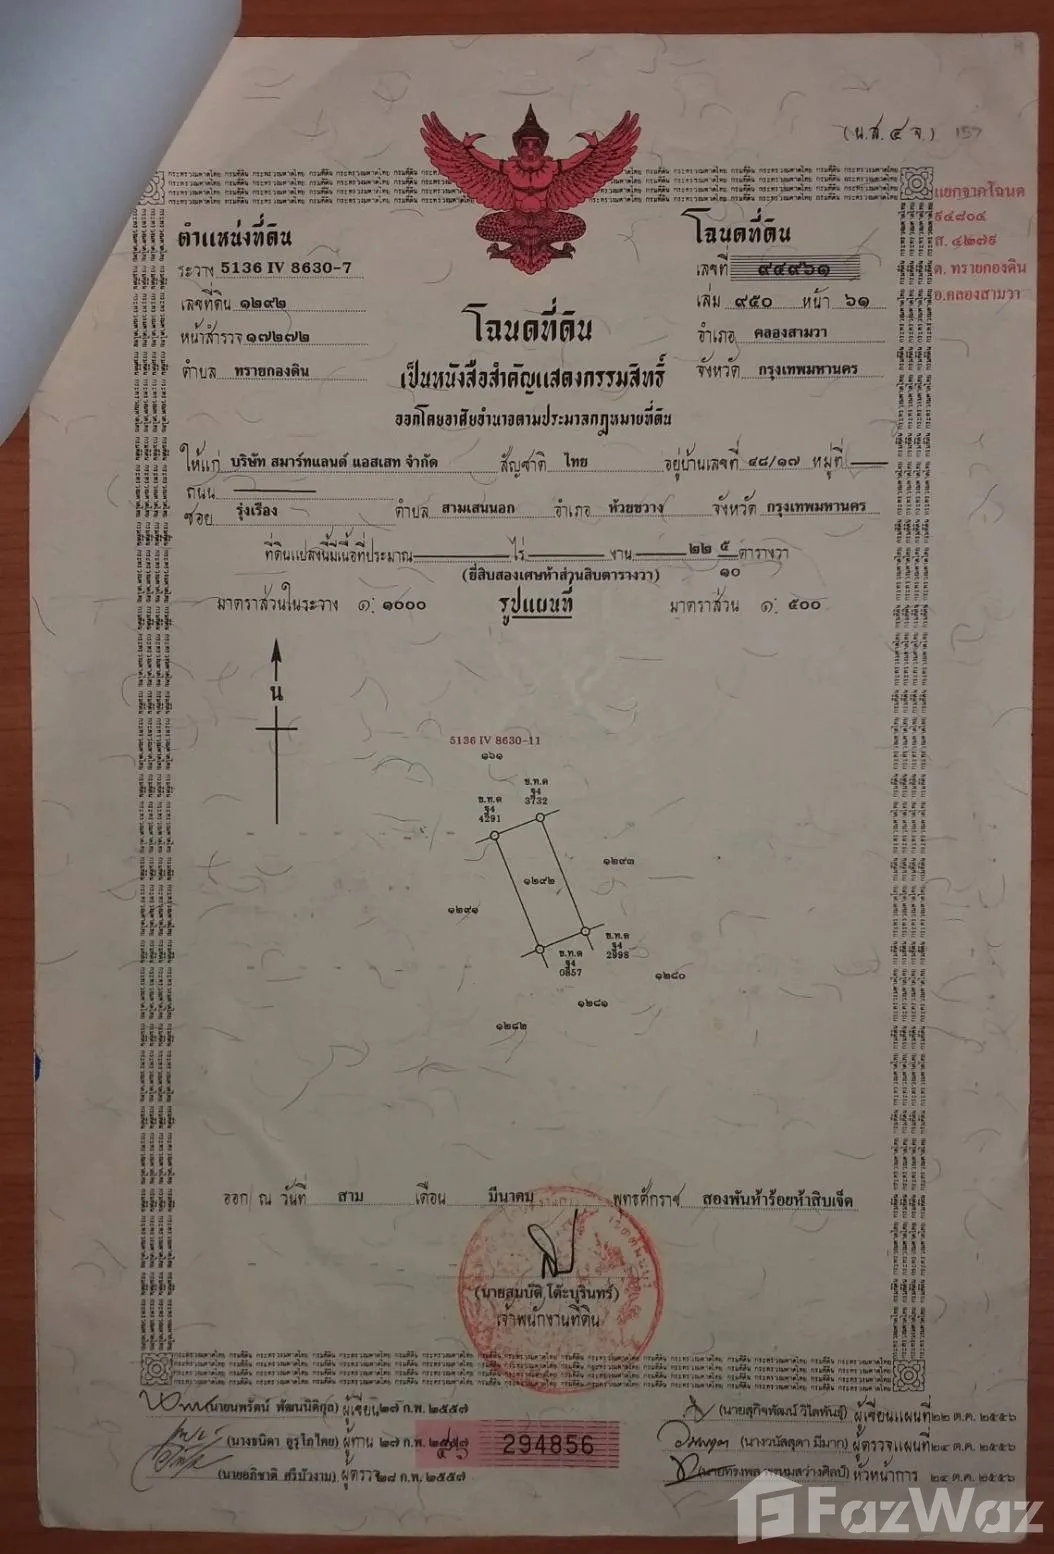 (น.ส. ๔ จ.) 157
แยกจากโฉนด
๙๔๘๐๔
ส. ๔๒๗๙
ต. ทรายกองดิน
อ.คลองสามวา
ตำแหน่งที่ดิน
ระวาง 5136 IV 8630-7
เลขที่ดิน ๑๒๙๒
หน้าสำรวจ ๑๗๒๗๒
ตำบล ทรายกองดิน
โฉนดที่ดิน
เลขที่ ๙๔๙๖๑
เล่ม ๙๕๐ หน้า ๖๑
อำเภอ คลองสามวา
จังหวัด กรุงเทพมหานคร
โฉนดที่ดิน
เป็นหนังสือสำคัญแสดงกรรมสิทธิ์
ออกโดยอาศัยอำนาจตามประมวลกฎหมายที่ดิน
ให้แก่ บริษัท สมาร์ทแลนด์ แอสเสท จำกัด สัญชาติ ไทย อยู่บ้านเลขที่ ๔๘/๑๗ หมู่ที่
ถนน
ซอย รุ่งเรือง ตำบล สามเสนนอก อำเภอ ห้วยขวาง จังหวัด กรุงเทพมหานคร
ที่ดินแปลงนี้มีเนื้อที่ประมาณ ไร่ งาน ๒๒ ๕/๑๐ ตารางวา
(ยี่สิบสองเศษห้าส่วนสิบตารางวา)
มาตราส่วนในระวาง ๑: ๑๐๐๐ รูปแผนที่ มาตราส่วน ๑: ๕๐๐
น
5136 IV 8630-11
๑๖๑
ข.ท.ด
ฐ4
3732
ข.ท.ด
ฐ4
4291
๑๒๙๓
๑๒๙๒
๑๒๙๑
ข.ท.ด
ฐ4
2998
ข.ท.ด
ฐ4
0857
๑๒๘๐
๑๒๘๑
๑๒๘๒
ออก ณ วันที่ สาม เดือน มีนาคม พุทธศักราช สองพันห้าร้อยห้าสิบเจ็ด
(นายสมบัติ โต๊ะบุรินทร์)
เจ้าพนักงานที่ดิน
(นายนพรัตน์ พัฒนนิติกุล) ผู้เขียน ๒๗ ก.พ. ๒๕๕๗
(นางธนิดา อุรุโภไคย) ผู้ทาน ๒๗ ก.พ.
(นายอภิชาติ ศรีบัวงาม) ผู้ตรวจ ๒๘ ก.พ. ๒๕๕๗
294856
(นายสุกิจพัฒน์ วิไลพันธุ์) ผู้เขียนแผนที่ ๒๒ ต.ค. ๒๕๕๖
(นางวนัสสุดา มีมาก) ผู้ตรวจแผนที่ ๒๔ ต.ค. ๒๕๕๖
หัวหน้าการ ๒๔ ต.ค. ๒๕๕๖
FazWaz